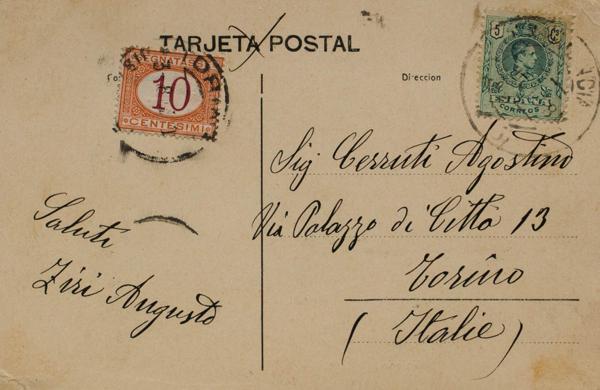 TARJETA POSTAL
Direccion
SEGNATASSE
10
CENTESIMI
5 Cs
CORREOS
Sig Cerruti Agostino
Via Palazzo di Città 13
Torino
(Italie)
Saluti
Ziri Augusto